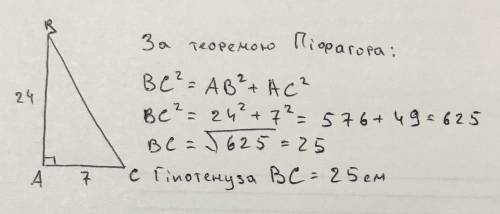 B
За теоремою Піфагора:
BC² = AB² + AC²
24
BC² = 24² + 7² = 576 + 49 = 625
BC = √625 = 25
A 7 C
Гіпотенуза BC = 25 см